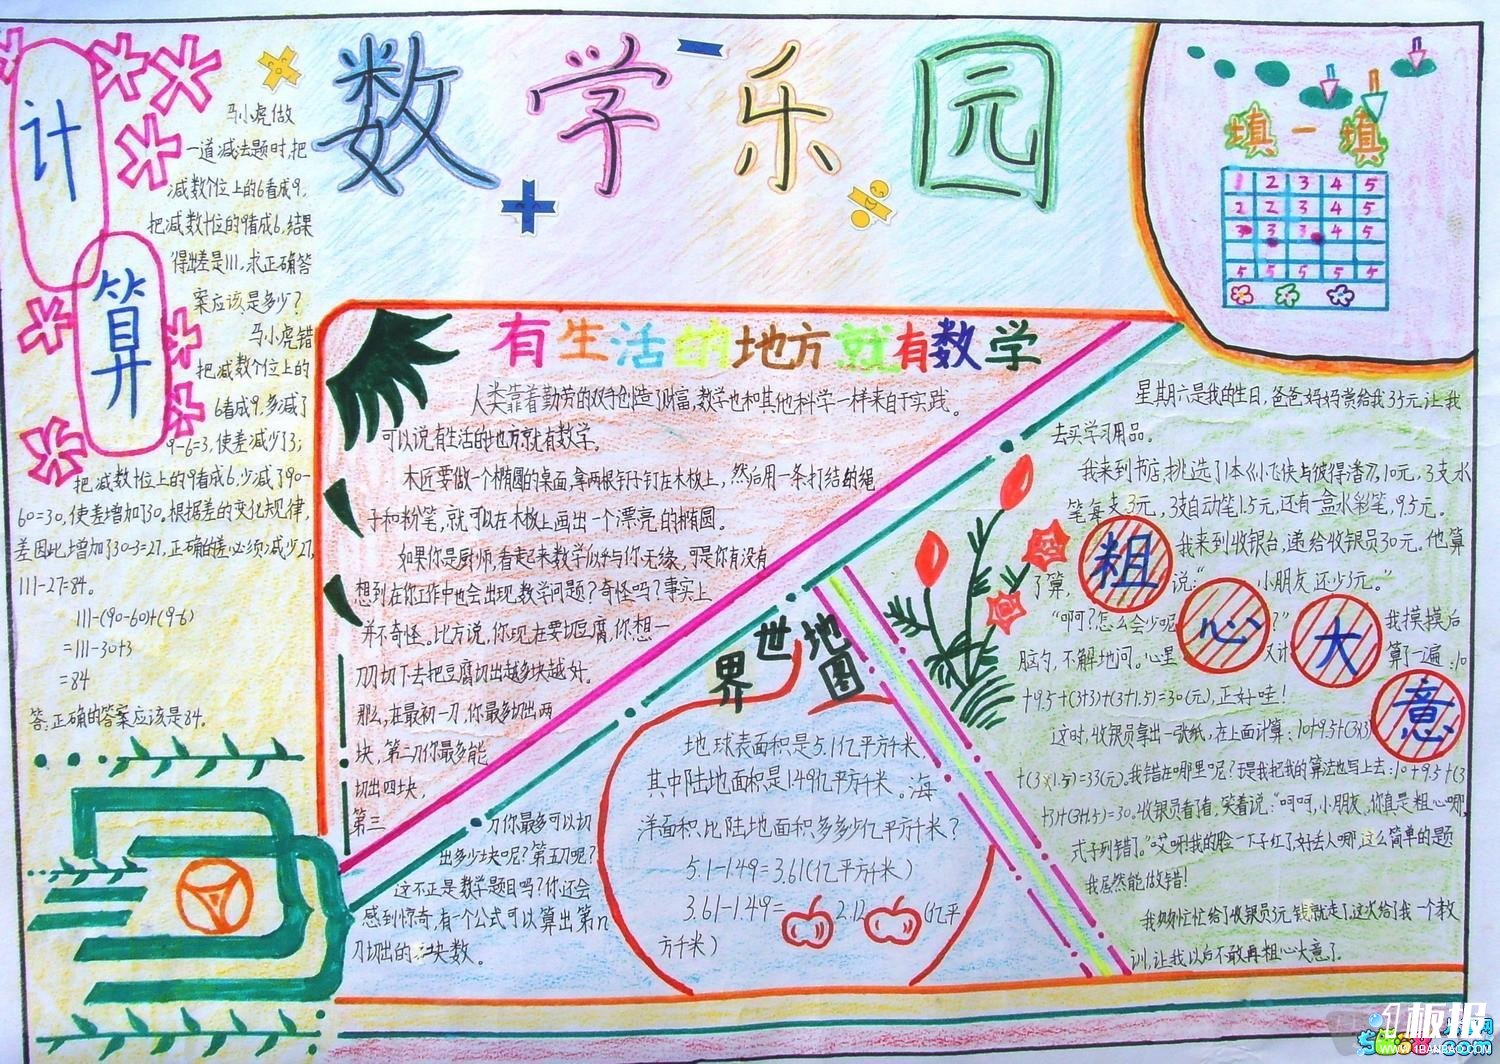 数学乐园
计算
马小虎做
一道减法题时,把
减数个位上的6看成9,
把减数十位的9看成6,结果
得出差是111,求正确答
案应该是多少?
马小虎错
把减数个位上的
6看成9,多减了
9-6=3,使差减少了3;
把减数十位上的9看成6,少减了90-
60=30,使差增加了30。根据差的变化规律,
差因此增加了30-3=27,正确的差必须减少27,
111-27=84。
111-(90-60)+(9-6)
=111-30+3
=84
答:正确的答案应该是84。
有生活的地方就有数学
人类靠着勤劳的双手创造了财富,数学也和其他科学一样来自于实践。
可以说有生活的地方就有数学。
木匠要做一个椭圆的桌面,拿两根钉子钉在木板上,然后用一条打结的绳
子和粉笔,就可以在木板上画出一个漂亮的椭圆。
如果你是厨师,看起来数学似乎与你无缘,可是你有没有
想到在你工作中也会出现数学问题?奇怪吗?事实上
并不奇怪。比方说,你现在要切豆腐,你想一
刀切下去把豆腐切出越多块越好。
那么,在最初一刀,你最多切出两
块,第二刀你最多能
切出四块,
第三刀你最多可以切
出多少块呢?第五刀呢?
这不正是数学题目吗?你还会
感到惊奇,有一个公式可以算出第n
刀切出的块数。
世界地图
地球表面积是5.1亿平方千米,
其中陆地面积是1.49亿平方千米。海
洋面积比陆地面积多多少亿平方千米?
5.1-1.49=3.61(亿平方千米)
3.61-1.49=2.12(亿平
方千米)
填一填
1 2 3 4 5
2 2 3 4 5
3 3 3 4 5
5 5 5 5 5
粗心大意
星期六是我的生日,爸爸妈妈赏给我35元让我
去买学习用品。
我来到书店,挑选了1本《小飞侠与彼得潘》,10元,3支水
笔每支3元,3支自动笔1.5元,还有一盒水彩笔,9.5元。
我来到收银台,递给收银员30元。他算
了算,说:“小朋友还少3元。”
“啊?怎么会少呢?”我摸摸后
脑勺,不解地问。心里又计算了一遍:10
+9.5+(3+3)+(3+1.5)=30(元),正好哇!
这时,收银员拿出一张纸,在上面计算:10+9.5+(3×3)
+(3×1.5)=33(元)。我错在哪里呢?于是我把我的算法也写上去:10+9.5+(3
+3)+(3+1.5)=30。收银员看了看,笑着说:“呵呵,小朋友,你真是粗心哪,
式子列错了。”哎呀!我的脸一下子红了,好丢人哪,这么简单的题
我居然能做错!
我匆匆忙忙给了收银员3元钱就走了,这次给了我一个教
训,让我以后不敢再粗心大意了。
板报网
WWW.1BANBAO.COM